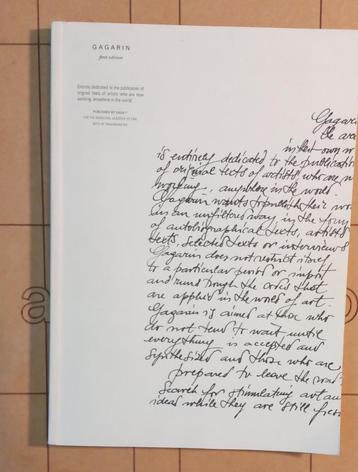 GAGARIN
first edition
Entirely dedicated to the publication of
original texts of artists who are now
working, anywhere in the world
Gagarin
the ar
in their own w
is entirely dedicated to the publication
of original texts of artists, who are n
working, anywhere in the world
Gagarin wants to publish their wo
in an way in the form
of autobiographical texts, artists
texts, selected texts or interviews
Gagarin does not restrict itself
to a particular period or
and run through the codes that
are applied in the world of art.
Gagarin is aimed at those who
do not tend to wait until
everything is accepted and
synthesised and those who are
prepared to leave the road
Search for stimulating art an
ideas while they are still fres
a